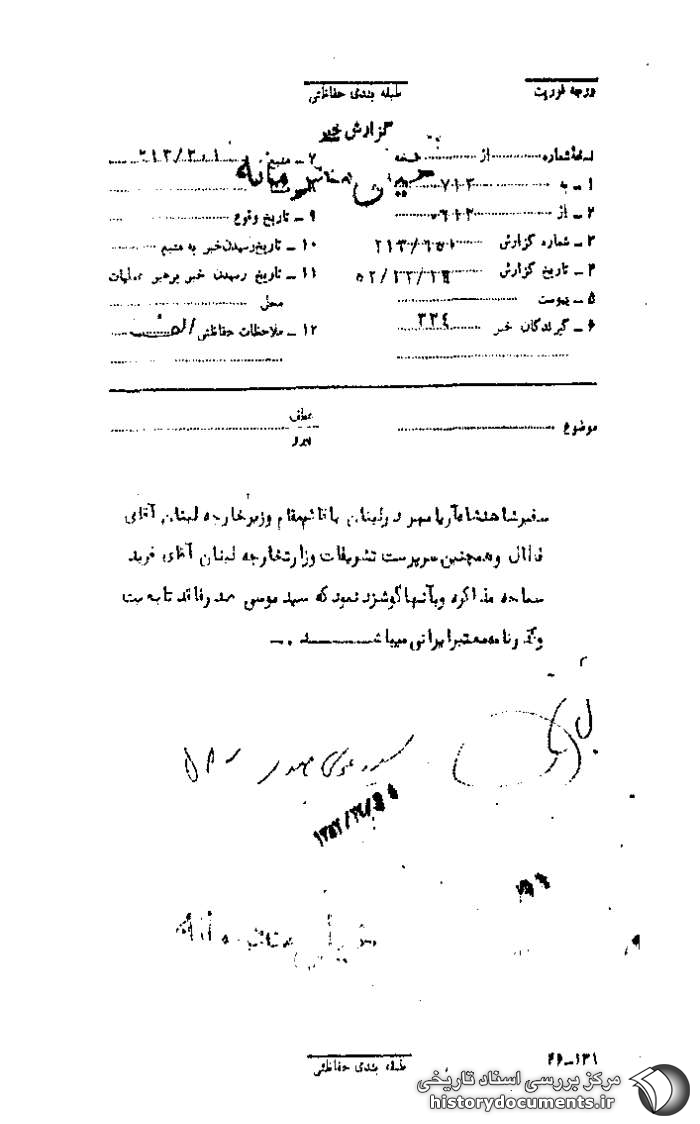 درجه فوریت
طبقه بندی حفاظتی
گزارش خبر
خیلی محرمانه
نسخه شماره از نسخه
۱ ـ به ۷۱۲
۲ ـ از
۳ ـ شماره گزارش
۴ ـ تاریخ گزارش
۵ ـ پیوست
۶ ـ گیرندگان خبر ۳۲۴
۷ ـ منبع
۹ ـ تاریخ وقوع
۱۰ ـ تاریخ رسیدن خبر به منبع
۱۱ ـ تاریخ رسیدن خبر برهبر عملیات
محلی
۱۲ ـ ملاحظات حفاظتی
موضوع
عطف
پیرو
سفیر شاهنشاه آریا مهر در لبنان با قائم مقام وزیر خارجه لبنان آقای
و همچنین سرپرست تشریفات وزارتخارجه لبنان آقای فرید
مذاکره و بآنها گوشزد نمود که سید موسی صدر فاقد تابعیت
و گذرنامه معتبر ایرانی میباشد .ـ
سید موسی صدر
خیلی محرمانه
طبقه بندی حفاظتی
۱۳۱ـ۴۶
مرکز بررسی اسناد تاریخی
historydocuments.ir